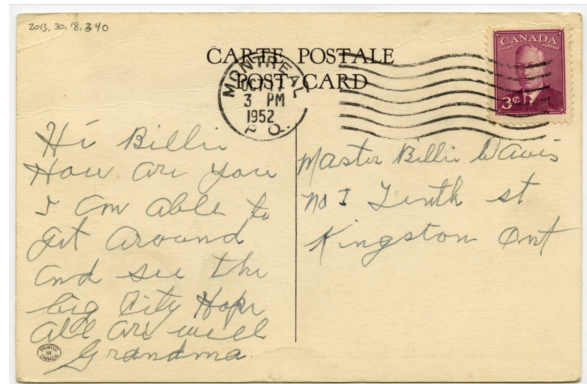 2013.30.18.340
CARTE POSTALE
POST CARD
MONTREAL
3 PM
1952
P.Q.
CANADA
3¢
Hi Billie
How are you
I am able to
get around
and see the
big City Hope
all are well
Grandma
Master Billie Davis
no 1 Tenth st
Kingston Ont
PRINTED
IN
CANADA